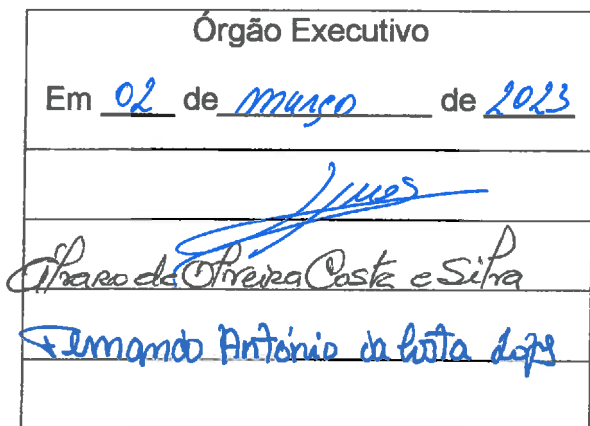 Órgão Executivo
Em 02 de março de 2023
Álvaro de Oliveira Costa e Silva
Fernando António da Costa Lopes